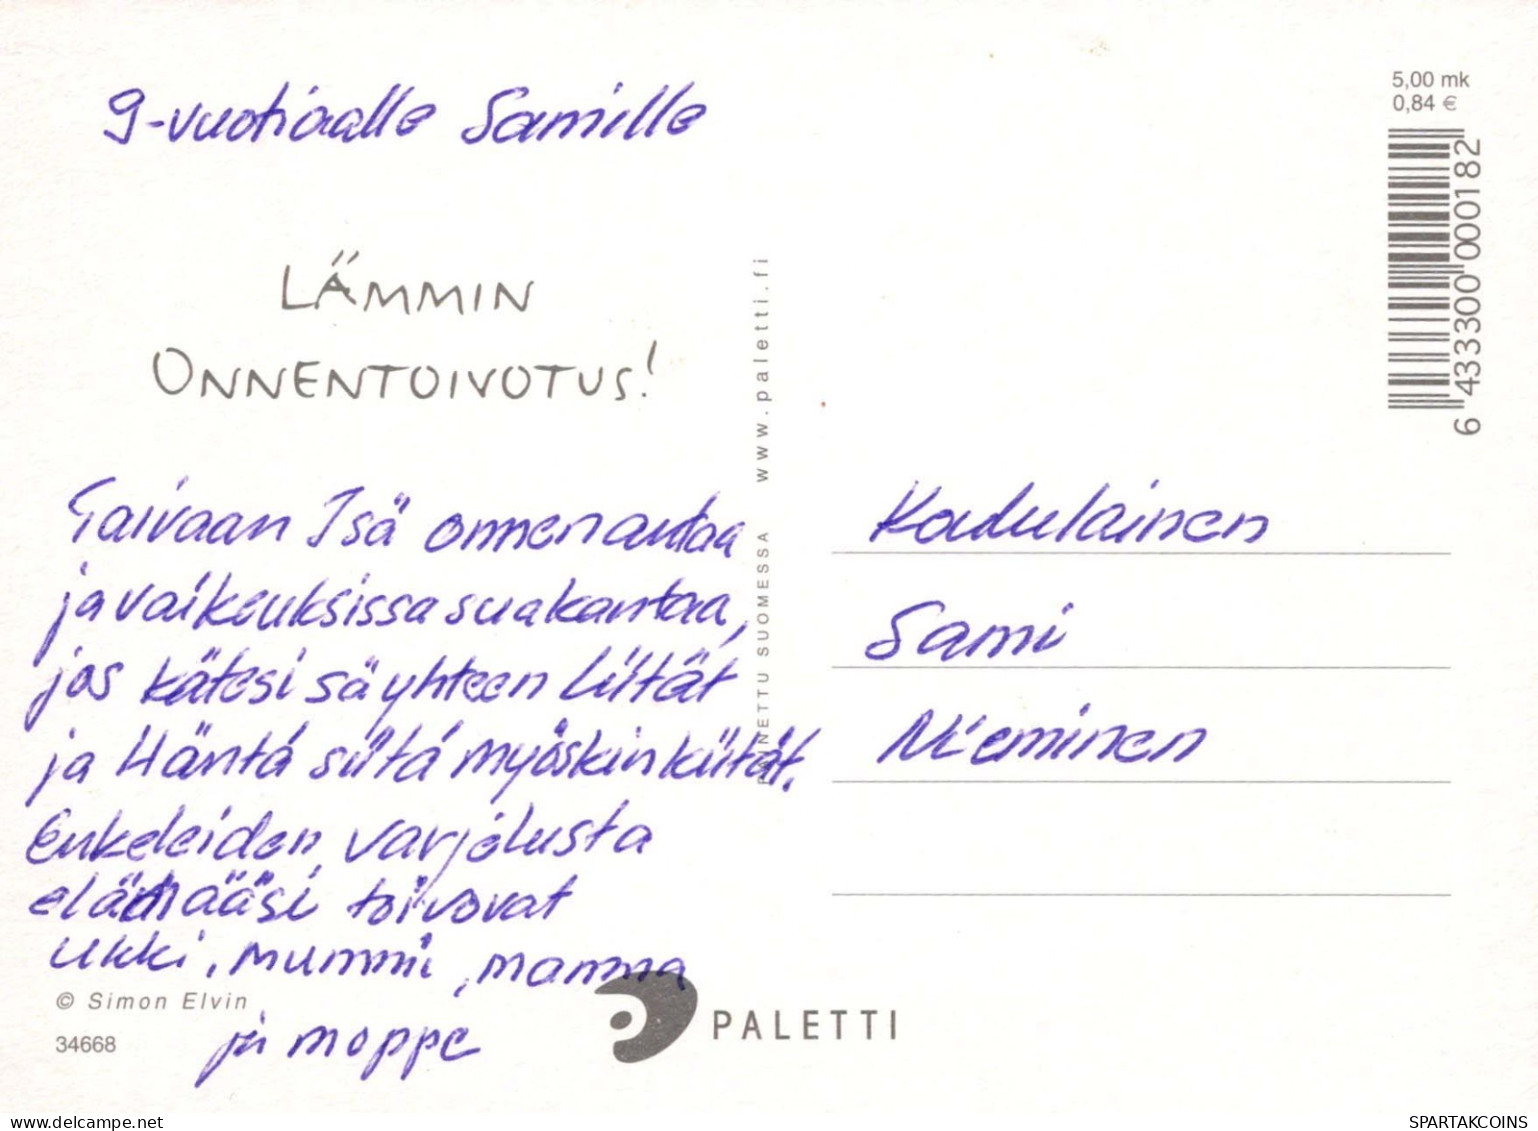 9-vuotiaalle Samille
LÄMMIN
ONNENTOIVOTUS!
Taivaan Isä onnen antaa
ja vaikeuksissa sua kantaa,
jos kätesi sä yhteen liität
ja Häntä siitä myöskin kiität.
Enkeleiden varjelusta
elämääsi toivovat
ukki, mummi, mamma
ja moppe
© Simon Elvin
34668
PALETTI
PAINETTU SUOMESSA www.paletti.fi
5,00 mk
0,84 €
6 433300 000182
Koululainen
Sami
Nieminen
delcampe.net
SPARTAKCOINS